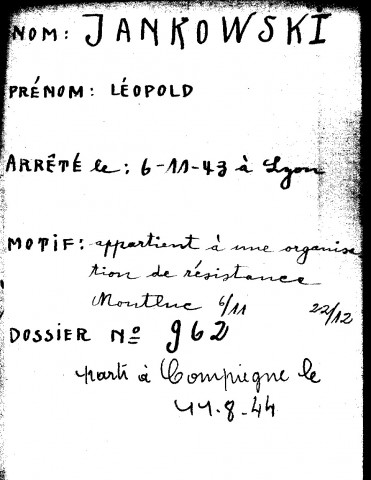 NOM: JANKOWSKI
PRÉNOM: LÉOPOLD
ARRÊTÉ le: 6-11-43 à Lyon
MOTIF: appartient à une organisa
tion de résistance
Montluc 6/11 22/12
DOSSIER Nº 962
parti à Compiegne le
11.8.44